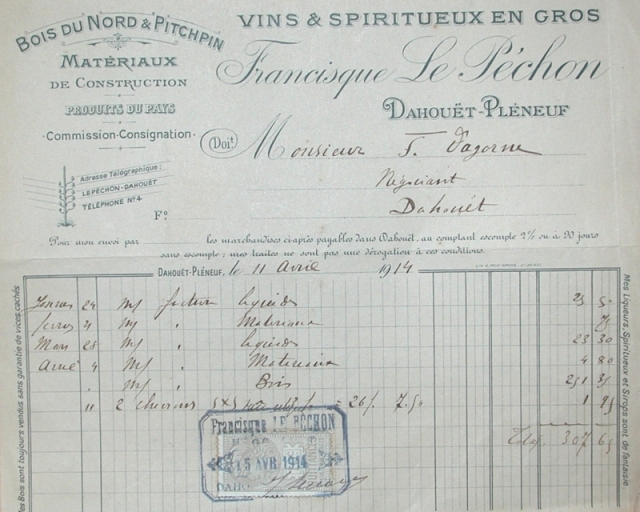 BOIS DU NORD & PITCHPIN
MATÉRIAUX
DE CONSTRUCTION
PRODUITS DU PAYS
Commission-Consignation
Adresse Télégraphique:
LE PÉCHON-DAHOUËT
TÉLÉPHONE Nº 4
VINS & SPIRITUEUX EN GROS
Francisque Le Péchon
DAHOUËT-PLÉNEUF
Doit Monsieur F. Dagorne
Négociant
Dahouët
Fº
Pour mon envoi par les marchandises ci-après payables dans Dahouët, au comptant escompte 2% ou à 90 jours
sans escompte; mes traites ne sont pas une dérogation à ces conditions.
DAHOUËT-PLÉNEUF, le 11 Avril 1914
Mes Bois sont toujours vendus sans garantie de vices cachés
Mes Liqueurs, Spiritueux et Sirops sont de fantaisie
24 facture liquides 25
4 " Materiaux
Mars 25 " liquides 23 30
4 " Materiaux 4 80
" Bois
11 2 chevrons 26 f. 7.50 1
307 65
Francisque LE PÉCHON
15 AVR 1914